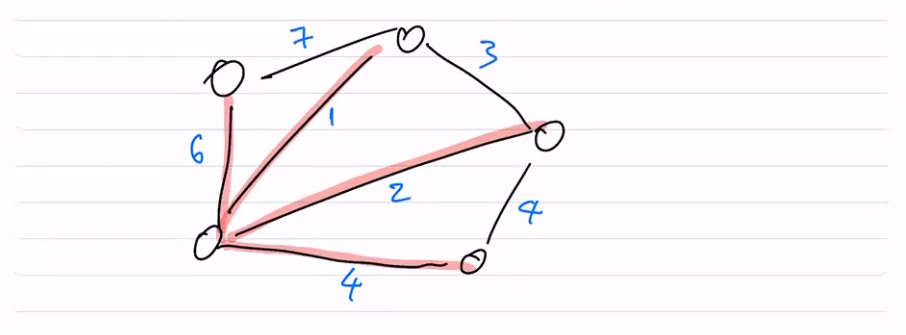 7
3
1
6
2
4
4